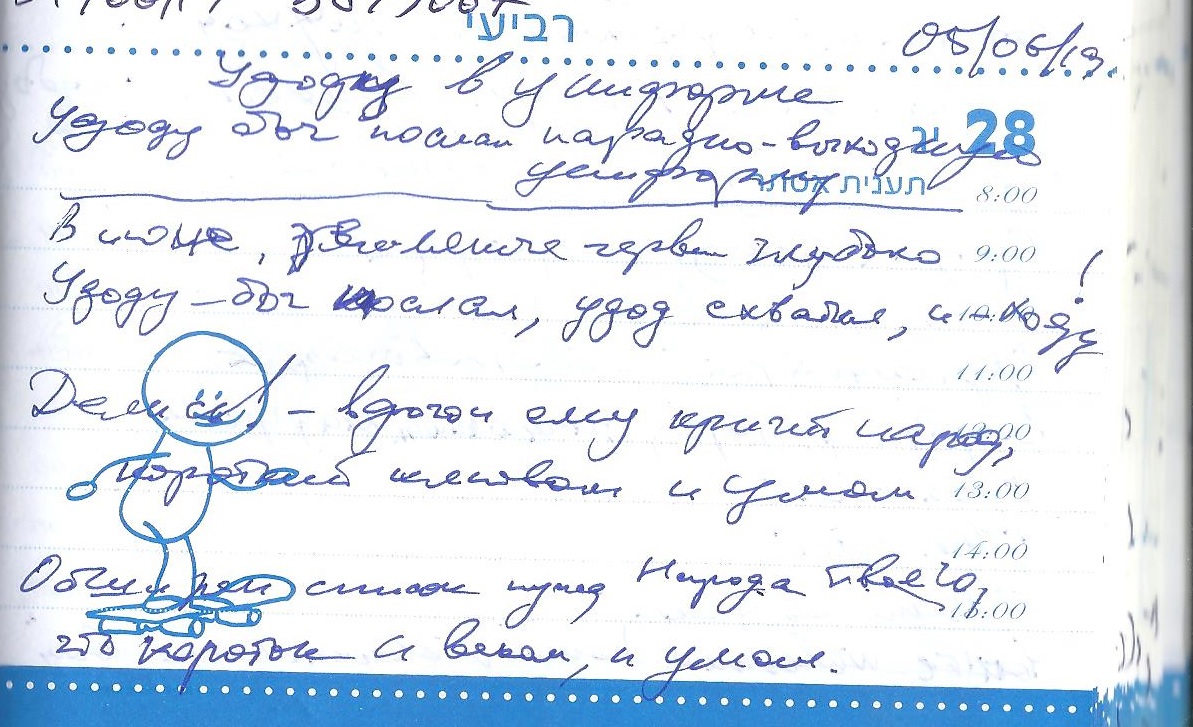 רביעי
05/06/19
Удоду в униформе
Удоду бог послал парадно-выходную
28
униформу
תענית אסתר
8:00
В июне, черви глубоко 9:00
Удоду – бог послал, удод схватил, и – ходу!
11:00
Дели – вдогон ему кричит народ,
короткий клювом и умом 13:00
14:00
Обширен список нужд Народа твоего,
15:00
что короток и веком, и умом.